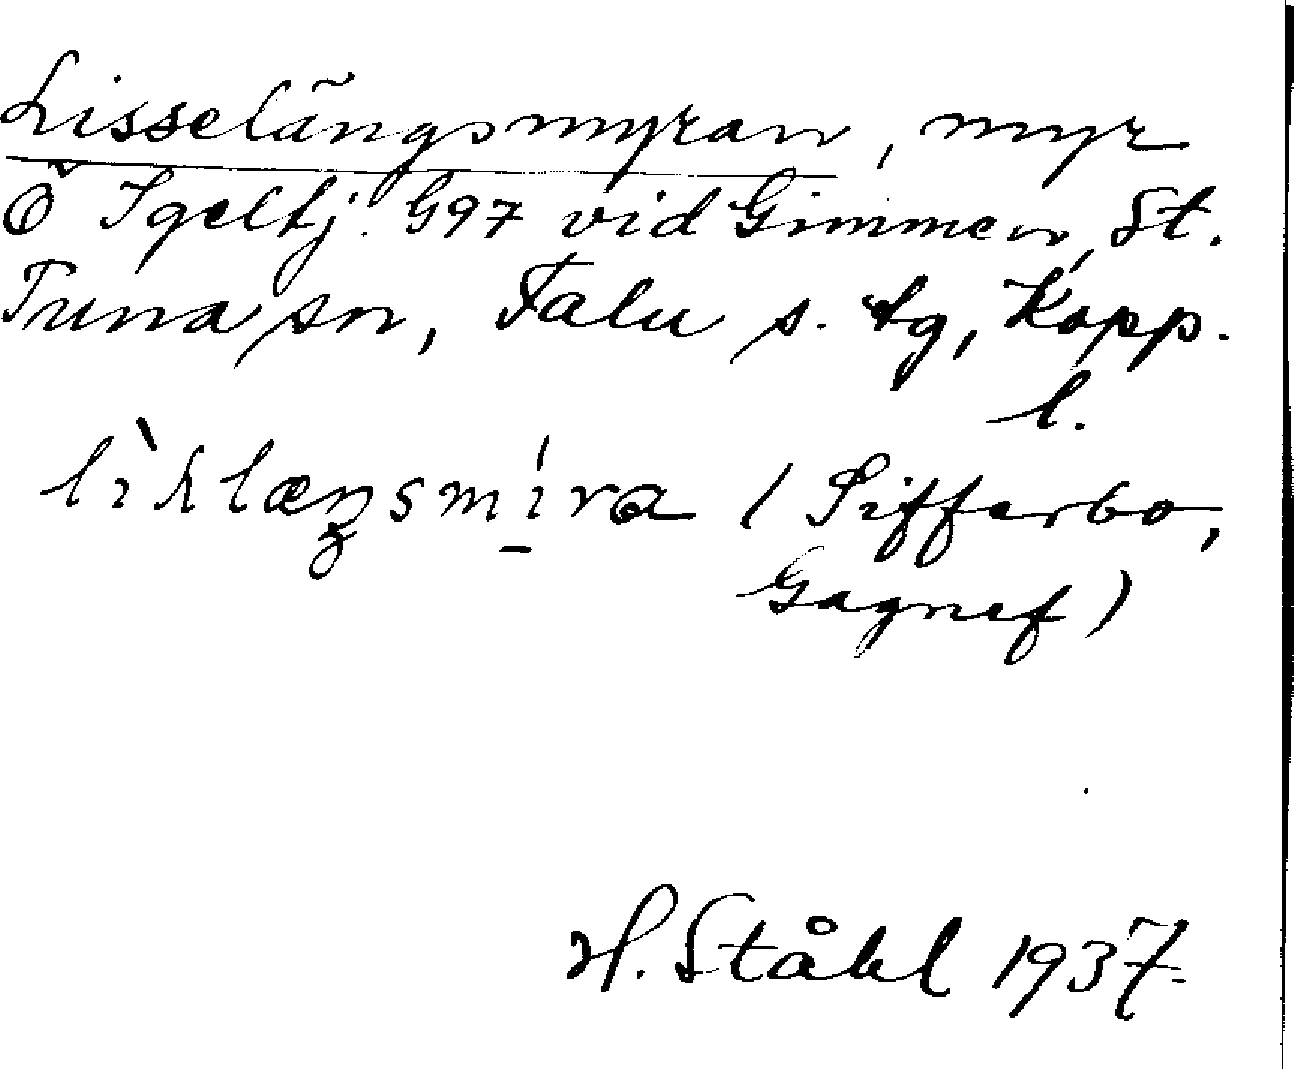 Lisselängsmyran, myr
Ö Igeltj. G97 vid Gimmen, St.
Tuna sn, Falu s. tg, Kopp.
l.
(Sifferbo,
Gagnef)
H. Ståhl 1937.